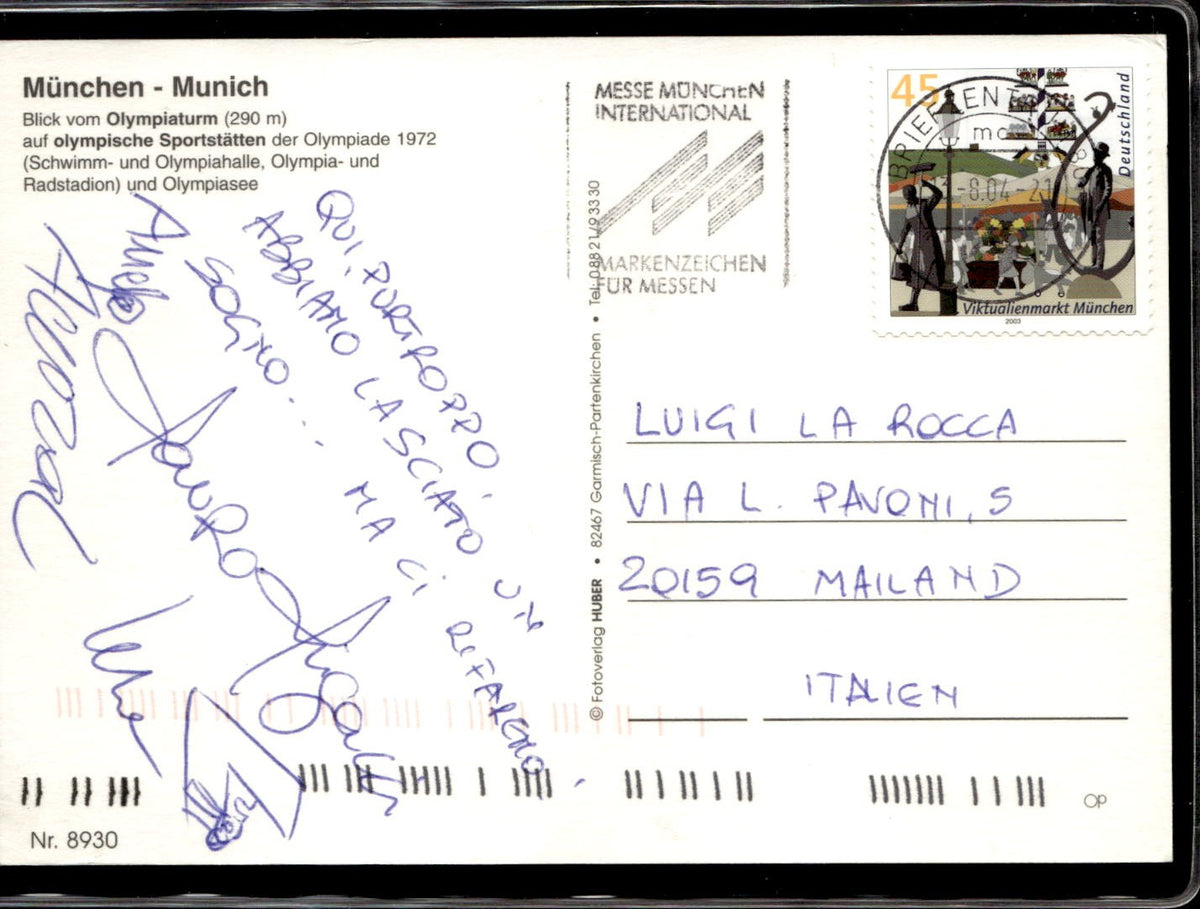 München - Munich
Blick vom Olympiaturm (290 m)
auf olympische Sportstätten der Olympiade 1972
(Schwimm- und Olympiahalle, Olympia- und
Radstadion) und Olympiasee
QUI, PURTROPPO,
ABBIAMO LASCIATO UN
SOGNO... MA CI RIFAREMO.
© Fotoverlag HUBER • 82467 Garmisch-Partenkirchen • Tel. 08821/93330
MESSE MÜNCHEN
INTERNATIONAL
MARKENZEICHEN
FÜR MESSEN
45
Deutschland
BRIEFZENTRUM
-8.04-21
Viktualienmarkt München
2003
LUIGI LA ROCCA
VIA L. PAVONI, 5
20159 MAILAND
ITALIEN
Nr. 8930
OP